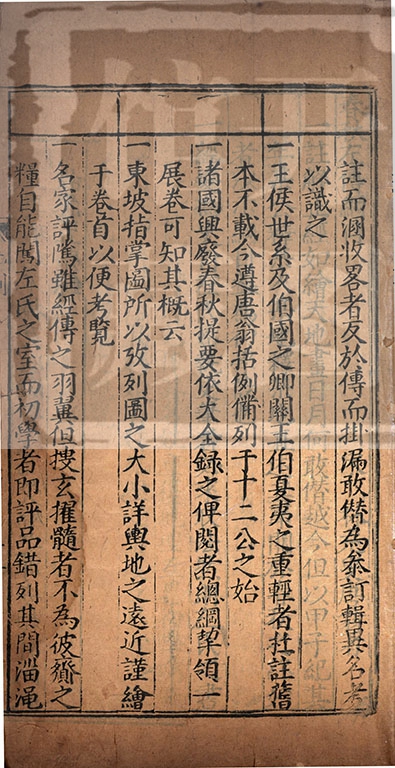 註而溷收畧者反於傳而掛漏敢僭為叅訂輯異名考
以識之
一王侯世系及伯國之卿關王伯夏夷之重輕者杜註舊
本不載今遵唐翁括例備列于十二公之始
一諸國興廢春秋提要依大全録之俾閱者總綱挈領一
展卷可知其概云
一東坡指掌圖所以攷列國之大小詳輿地之遠近謹繪
于卷首以便考覧
一名家評隲雖經傳之羽翼但搜玄摧髓者不為彼齎之
糧自能闖左氏之室而初學者即評品錯列其間淄渑